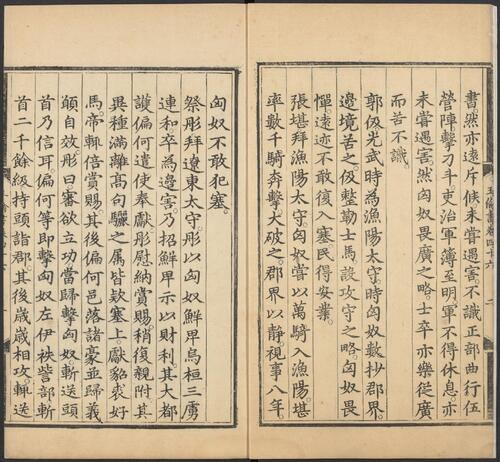 書然亦遠斥候未嘗遇害不識正部曲行伍
營陣擊刁斗吏治軍簿至明軍不得休息亦
未嘗遇害然匈奴畏廣之略士卒亦樂從廣
而苦不識
郭伋光武時為漁陽太守時匈奴數抄郡界
邊境苦之伋整勤士馬設攻守之略匈奴畏
憚遠迹不敢復入塞民得安業
張堪拜漁陽太守匈奴嘗以萬騎入漁陽堪
率數千騎奔擊大破之郡界以靜視事八年
匈奴不敢犯塞
祭肜拜遼東太守肜以匈奴鮮卑烏桓三虜
連和卒為邊害乃招鮮卑示以財利其大都
護偏何遣使奉獻肜慰納賞賜稍復親附其
異種滿離高句驪之屬皆欵塞上獻貂裘好
馬帝輒倍賞賜其後偏何邑落諸豪並歸義
願自效肜曰審欲立功當歸擊匈奴斬送頭
首乃信耳偏何等即擊匈奴左伊秩訾部斬
首二千餘級持頭詣郡其後歲歲相攻輒送